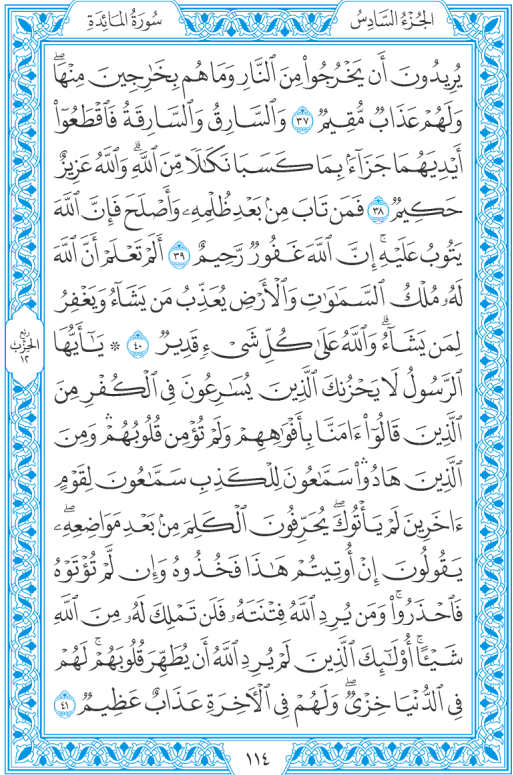 الجُزْءُ السَّادِسُ
سُورَةُ المَائِدَةِ
يُرِيدُونَ أَن يَخْرُجُوا۟ مِنَ ٱلنَّارِ وَمَا هُم بِخَـٰرِجِينَ مِنْهَا ۖ
وَلَهُمْ عَذَابٌ مُّقِيمٌ ٣٧ وَٱلسَّارِقُ وَٱلسَّارِقَةُ فَٱقْطَعُوٓا۟
أَيْدِيَهُمَا جَزَآءَۢ بِمَا كَسَبَا نَكَـٰلًا مِّنَ ٱللَّهِ ۗ وَٱللَّهُ عَزِيزٌ
حَكِيمٌ ٣٨ فَمَن تَابَ مِنۢ بَعْدِ ظُلْمِهِۦ وَأَصْلَحَ فَإِنَّ ٱللَّهَ
يَتُوبُ عَلَيْهِ ۗ إِنَّ ٱللَّهَ غَفُورٌ رَّحِيمٌ ٣٩ أَلَمْ تَعْلَمْ أَنَّ ٱللَّهَ
لَهُۥ مُلْكُ ٱلسَّمَـٰوَٰتِ وَٱلْأَرْضِ يُعَذِّبُ مَن يَشَآءُ وَيَغْفِرُ
لِمَن يَشَآءُ ۗ وَٱللَّهُ عَلَىٰ كُلِّ شَىْءٍ قَدِيرٌ ٤٠ * يَـٰٓأَيُّهَا
ٱلرَّسُولُ لَا يَحْزُنكَ ٱلَّذِينَ يُسَـٰرِعُونَ فِى ٱلْكُفْرِ مِنَ
ٱلَّذِينَ قَالُوٓا۟ ءَامَنَّا بِأَفْوَٰهِهِمْ وَلَمْ تُؤْمِن قُلُوبُهُمْ ۛ وَمِنَ
ٱلَّذِينَ هَادُوا۟ ۛ سَمَّـٰعُونَ لِلْكَذِبِ سَمَّـٰعُونَ لِقَوْمٍ
ءَاخَرِينَ لَمْ يَأْتُوكَ ۖ يُحَرِّفُونَ ٱلْكَلِمَ مِنۢ بَعْدِ مَوَاضِعِهِۦ ۖ
يَقُولُونَ إِنْ أُوتِيتُمْ هَـٰذَا فَخُذُوهُ وَإِن لَّمْ تُؤْتَوْهُ
فَٱحْذَرُوا۟ ۚ وَمَن يُرِدِ ٱللَّهُ فِتْنَتَهُۥ فَلَن تَمْلِكَ لَهُۥ مِنَ ٱللَّهِ
شَيْـًٔا ۚ أُو۟لَـٰٓئِكَ ٱلَّذِينَ لَمْ يُرِدِ ٱللَّهُ أَن يُطَهِّرَ قُلُوبَهُمْ ۚ لَهُمْ
فِى ٱلدُّنْيَا خِزْىٌ ۖ وَلَهُمْ فِى ٱلْـَٔاخِرَةِ عَذَابٌ عَظِيمٌ ٤١
ربع
الحزب
١٢
١١٤